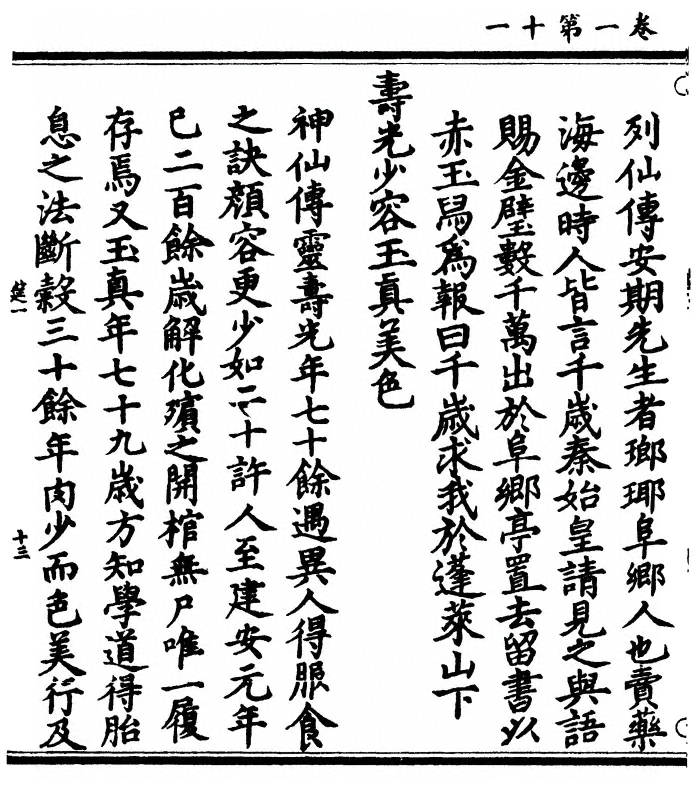 卷一第十一
列仙傳安期先生者瑯琊阜鄉人也賣藥
海邊時人皆言千歲秦始皇請見之與語
賜金璧數千萬出於阜鄉亭置去留書以
赤玉舄為報曰千歲求我於蓬萊山下
壽光少容王真美色
神仙傳靈壽光年七十餘遇異人得服食
之訣顏容更少如二十許人至建安元年
已二百餘歲解化殯之開棺無尸唯一履
存焉又王真年七十九歲方知學道得胎
息之法斷穀三十餘年肉少而色美行及
十三